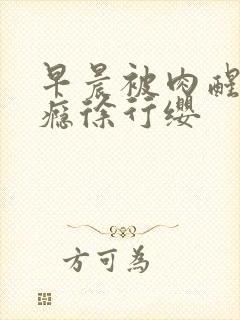 早晨被肉醒
瘾徐行缨
方可为